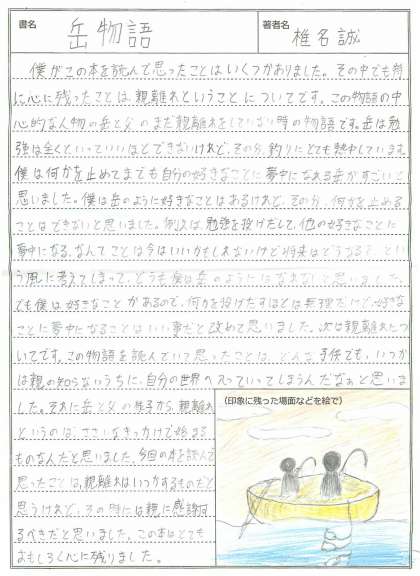 書名
岳物語
著者名
椎名誠
僕がこの本を読んで思ったことはいくつかありました。その中でも特
に心に残ったことは親離れということについてです。この物語の中
心的な人物の岳と父のまだ親離れをしていない時の物語です。岳は勉
強は全くといっていいほどできないけれど、その分、釣りにとても熱中しています。
僕は何かを止めてまでも自分の好きなことに夢中になれる岳がすごいと
思いました。僕は岳のように好きなことはあるけれど、その分、何かを止める
ことはできないと思いました。例えば勉強を投げだして、他の好きなことに
夢中になる、なんてことは今はいいかもしれないけど将来はどうなる?とい
う風に考えてしまって、どうも僕は岳のようにはなれないと思いました。
でも僕は好きなことがあるので、何かを投げだすほどは無理だけど、好きな
ことに夢中になることはいい事だと改めて思いました。次は親離れにつ
いてです。この物語を読んでいて思ったことは、どんな子供でも、いつか
は親の知らないうちに、自分の世界へ入っていってしまうんだなぁと思いま
した。それに岳と父の様子から、親離れ
というのは、ささいなきっかけで始まる
ものなんだと思いました。今回の本を読んで
思ったことは、親離れはいつかするものだと
思うけれど、その時には親に感謝す
るべきだと思いました。この本はとても
おもしろく心に残りました。
(印象に残った場面などを絵で)